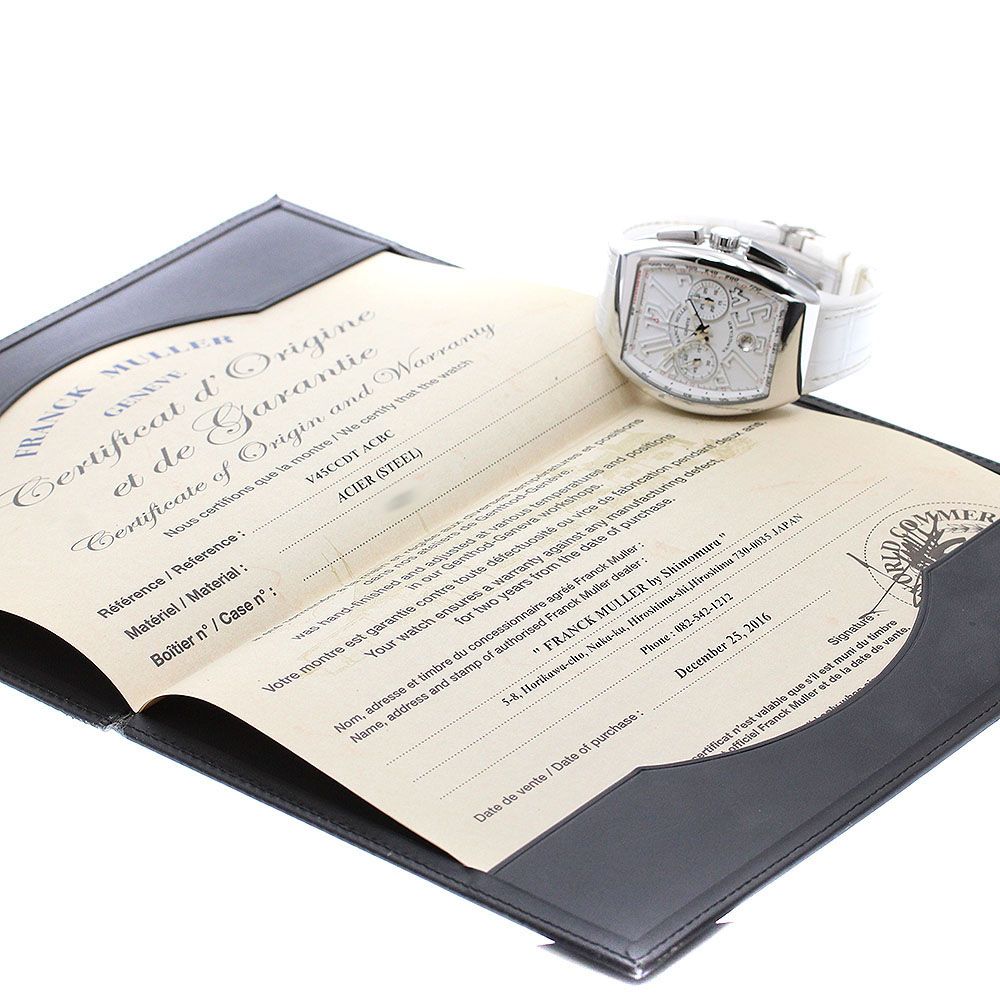 FRANCK MULLER
GENEVE
Certificat d'Origine
et de Garantie
Certificate of Origin and Warranty
Nous certifions que la montre / We certify that the watch
Référence / Reference : V45CCDT ACBC
Matériel / Material : ACIER (STEEL)
Boîtier n° / Case n° :
températures et positions
ateliers de Genthod-Genève.
was hand-finished and adjusted at various temperatures and positions
in our Genthod-Geneva workshops.
Votre montre est garantie contre toute défectuosité ou vice de fabrication pendant deux ans.
Your watch ensures a warranty against any manufacturing defect
for two years from the date of purchase.
Nom, adresse et timbre du concessionnaire agréé Franck Muller :
Name, address and stamp of authorised Franck Muller dealer :
" FRANCK MULLER by Shimomura "
5-8, Horikawa-cho, Naka-ku, Hiroshima-shi, Hiroshima 730-0035 JAPAN
Phone : 082-542-1212
Date de vente / Date of purchase : December 25, 2016
Signature
certificat n'est valable que s'il est muni du timbre
officiel Franck Muller et de la date de vente.
WORLD COMMER